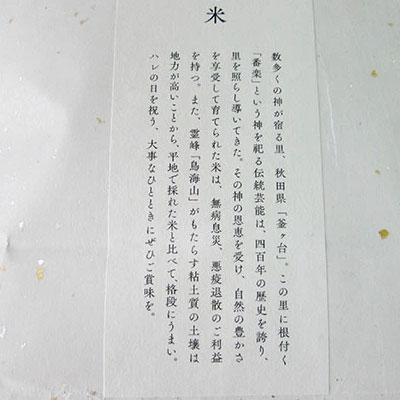 米
数多くの神が宿る里、秋田県「釜ヶ台」。この里に根付く
「番楽」という神を祀る伝統芸能は、四百年の歴史を誇り、
里を照らし導いてきた。その神の恩恵を受け、自然の豊かさ
を享受して育てられた米は、無病息災、悪疫退散のご利益
を持つ。また、霊峰「鳥海山」がもたらす粘土質の土壌は
地力が高いことから、平地で採れた米と比べて、格段にうまい。
ハレの日を祝う、大事なひとときにぜひご賞味を。